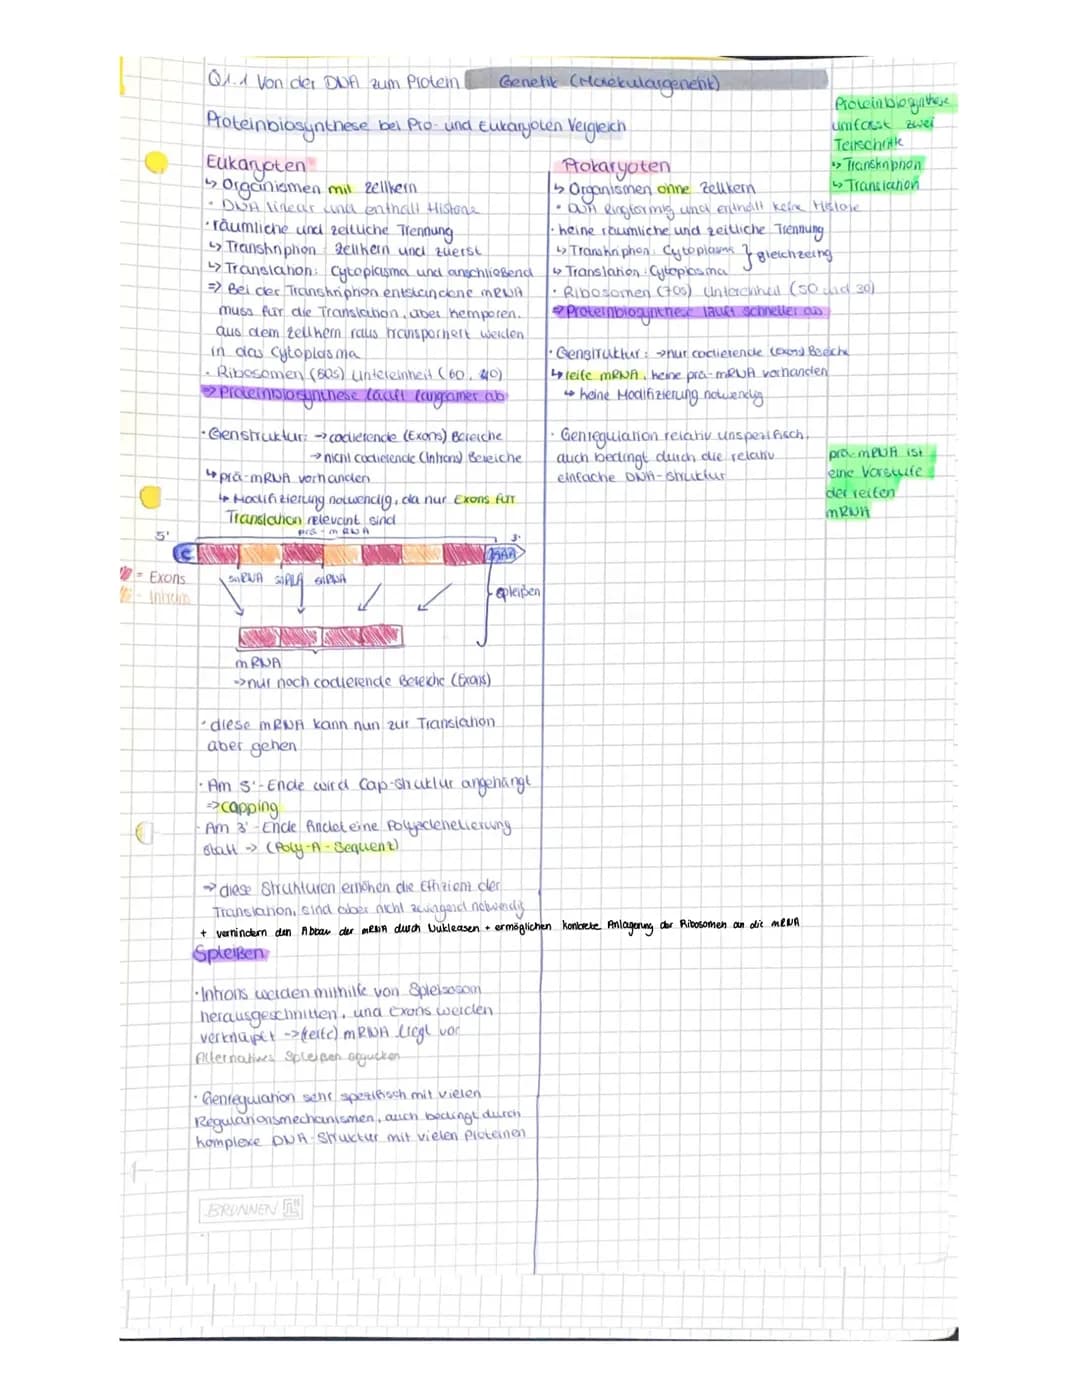 Q1.1 Von der DNA zum Protein Genetik (Molekulargenetik)
Proteinbiosynthese bei Pro- und Eukaryoten Vergleich
Eukaryoten
↳ Organismen mit Zellkern
· DNA linear und enthält Histone
· räumliche und zeitliche Trennung
↳ Transkription: Zellkern und zuerst
↳ Translation: Cytoplasma und anschließend
=> Bei der Transkription entstandene mRNA
muss für die Translation, aber
aus dem Zellkern raus transportiert werden
in das Cytoplasma
· Ribosomen (80S) Untereinheit (60, 40)
=> Proteinbiosynthese läuft langsamer ab
· Genstruktur: → codierende (Exons) Bereiche
→ nicht codierende (Introns) Bereiche
↳ prä-mRNA vorhanden
↳ Modifizierung notwendig, da nur Exons für
Translation relevant sind
prä-mRNA
5' 3'
C AAA
= Exons
= Introns
snRNA snRNA snRNA
spleißen
mRNA
→ nur noch codierende Bereiche (Exons)
· diese mRNA kann nun zur Translation
aber gehen
· Am 5'-Ende wird Cap-Struktur angehängt
=> capping
· Am 3'-Ende findet eine Polyadenelierung
statt → (Poly-A-Sequenz)
→ diese Strukturen erhöhen die Effizienz der
Translation, sind aber nicht zwingend notwendig
+ vernindern den Abbau der mRNA durch Nukleasen + ermöglichen konkrete Anlagerung der Ribosomen an die mRNA
Spleißen
· Introns werden mithilfe von Spleißosom
herausgeschnitten, und Exons werden
verknüpft → (reife) mRNA liegt vor
Alternatives Spleißen
· Genregulation sehr spezifisch mit vielen
Regulationsmechanismen, auch bedingt durch
komplexe DNA-Struktur mit vielen Proteinen
BRUNNEN
Prokaryoten
↳ Organismen ohne Zellkern
· DNA Ringförmig und enthält keine Histone
· keine räumliche und zeitliche Trennung
↳ Transkription: Cytoplasma } gleichzeitig
↳ Translation: Cytoplasma
· Ribosomen (70S) Untereinheit (50 und 30)
=> Proteinbiosynthese läuft schneller ab
· Genstruktur: → nur codierende (Exons) Bereiche
↳ reife mRNA, keine prä-mRNA vorhanden
↳ keine Modifizierung notwendig
· Genregulation relativ unspezifisch,
auch bedingt durch die relativ
einfache DNA-Struktur
Proteinbiosynthese
umfasst zwei
Teilschritte
↳ Transkription
↳ Translation
prä-mRNA ist
eine Vorstufe
der reifen
mRNA